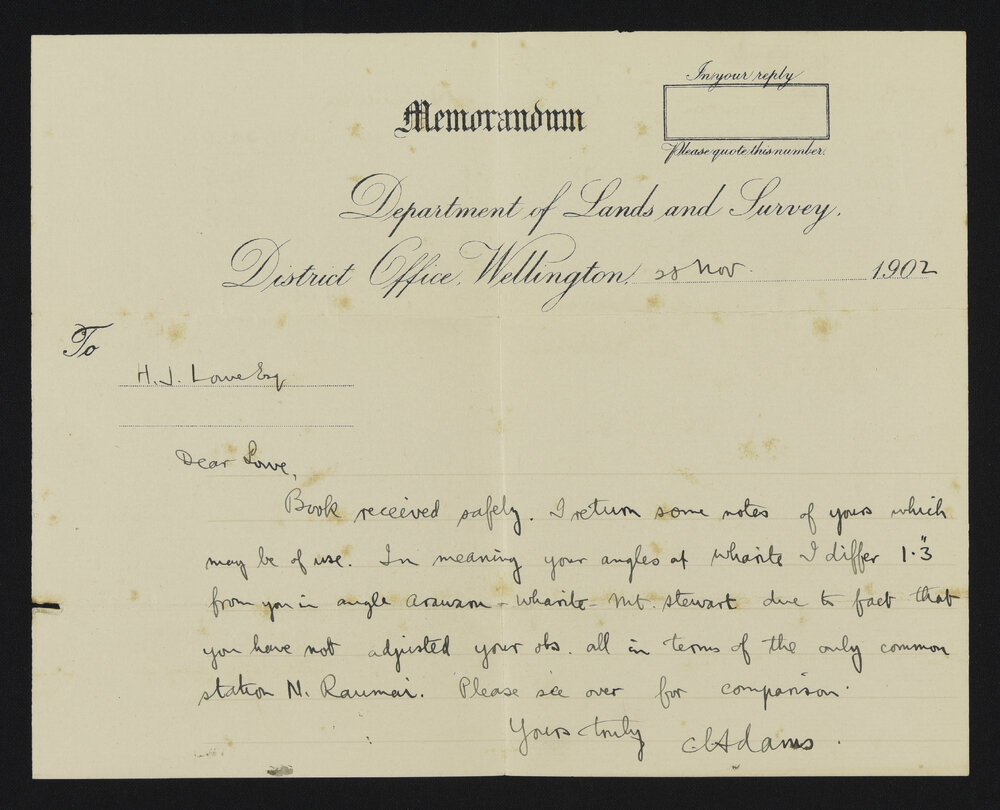 In your reply
Memorandum
Please quote this number.
Department of Lands and Survey.
District Office, Wellington, 28 Nov. 1902
To
H. J. Lowe Esq
Dear Lowe,
Book received safely. I return some notes of yours which
may be of use. In meaning your angles at Wharite I differ 1·"3
from you in angle Arawaru - Wharite - Mt. Stewart due to fact that
you have not adjusted your obs. all in terms of the only common
station N. Raumai. Please see over for comparison.
Yours truly CEAdams.